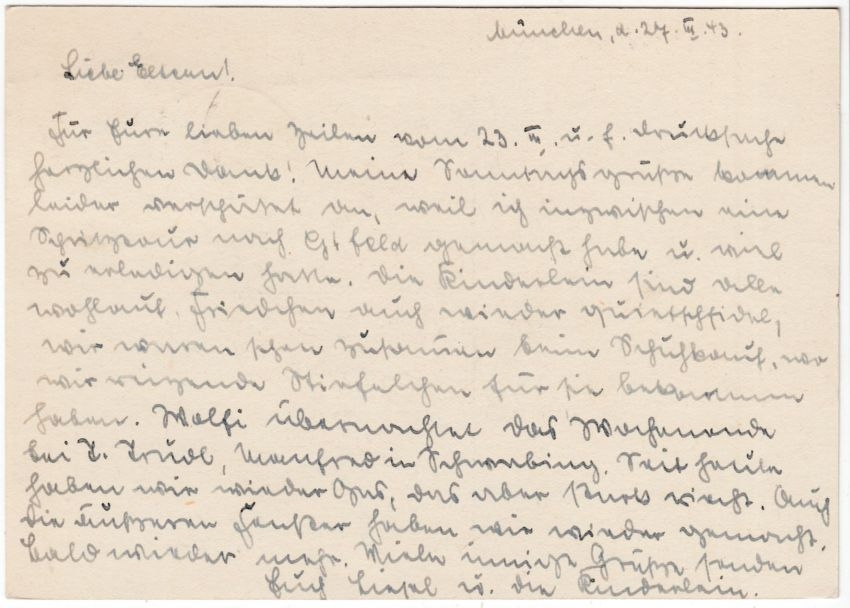 München, d. 27. III. 43.
Liebe Eltern!
Für Eure lieben Zeilen vom 23. III. u. f. Drucksache
herzlichen Dank! Meine Sonntagsgrüsse kommen
leider verspätet an, weil ich inzwischen eine
Spritztour nach feld gemacht habe u. viel
zu erledigen hatte. Die Kinderlein sind alle
wohlauf, Friedchen auch wieder quietschfidel,
wir waren schon zusammen beim Schuhkauf, wo
wir reizende Stiefelchen für sie bekommen
haben. Wolfi übernachtet das Wochenende
bei T. Trudl, Manfred in Schwabing. Seit heute
haben wir wieder Gas, das aber stark riecht. Auch
die äußeren Fenster haben wir wieder gemacht.
Bald wieder mehr. Viele innige Grüsse senden
Euch Liesel u. die Kinderlein.